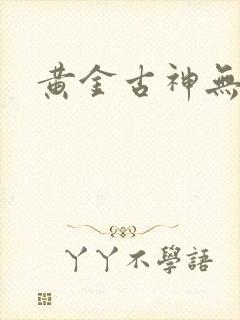 黃金古神無
丫丫不學語